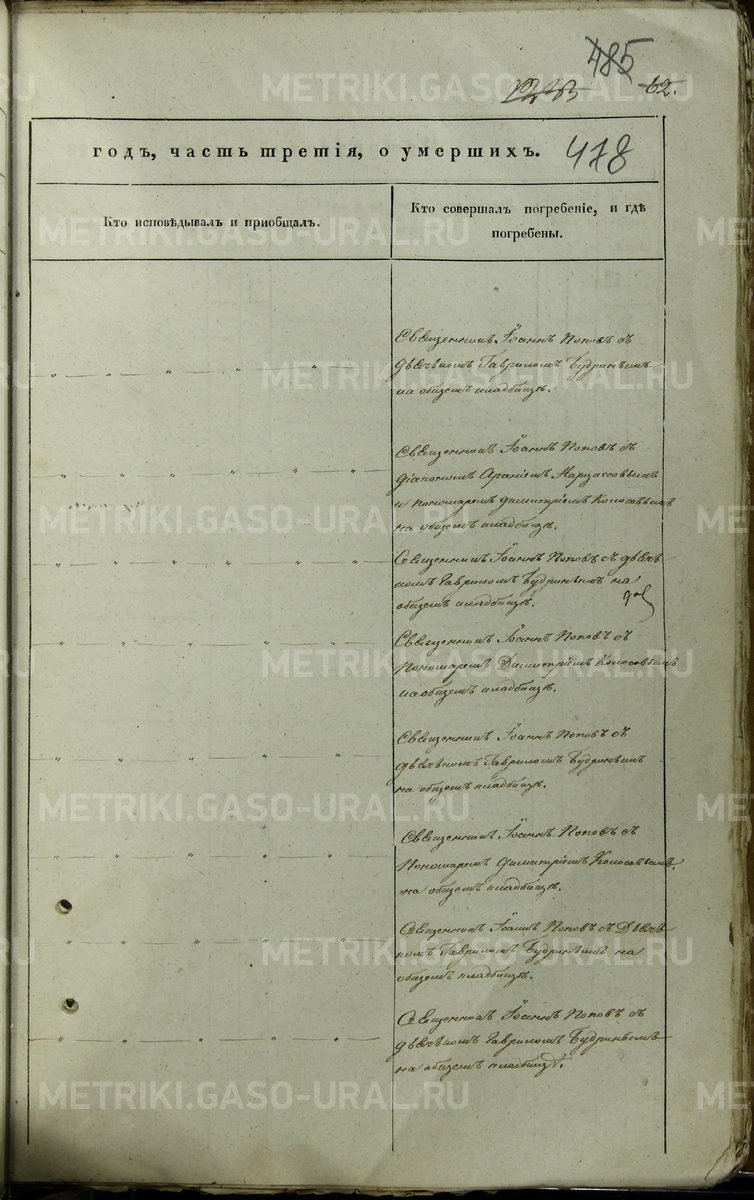 485
62.
478
годъ, часть третія, о умершихъ.
Кто исповѣдывалъ и приобщалъ.
Кто совершалъ погребеніе, и гдѣ
погребены.
Священникъ Іоаннъ Поповъ съ
дьячькомъ Гавриломъ Будринымъ
на общемъ кладбищѣ.
Священникъ Іоаннъ Поповъ съ
діакономъ Нарциссовымъ
и пономаремъ Димитріемъ Колосовымъ
на общемъ кладбищѣ.
Священникъ Іоаннъ Поповъ съ дьячь
комъ Гавриломъ Будринымъ на
общемъ кладбищѣ.
Священникъ Іоаннъ Поповъ съ
Пономаремъ Димитріемъ Колосовымъ
на общемъ кладбищѣ.
Священникъ Іоаннъ Поповъ съ
дьячькомъ Гавриломъ Будринымъ
на общемъ кладбищѣ.
Священникъ Іоаннъ Поповъ съ
Пономаремъ Димитріемъ Колосовымъ
на общемъ кладбищѣ.
Священникъ Іоаннъ Поповъ съ Дьячь
комъ Гавриломъ Будринымъ на
общемъ кладбищѣ.
Священникъ Іоаннъ Поповъ съ
дьячькомъ Гавриломъ Будринымъ
на общемъ кладбищѣ.
METRIKI.GASO-URAL.RU